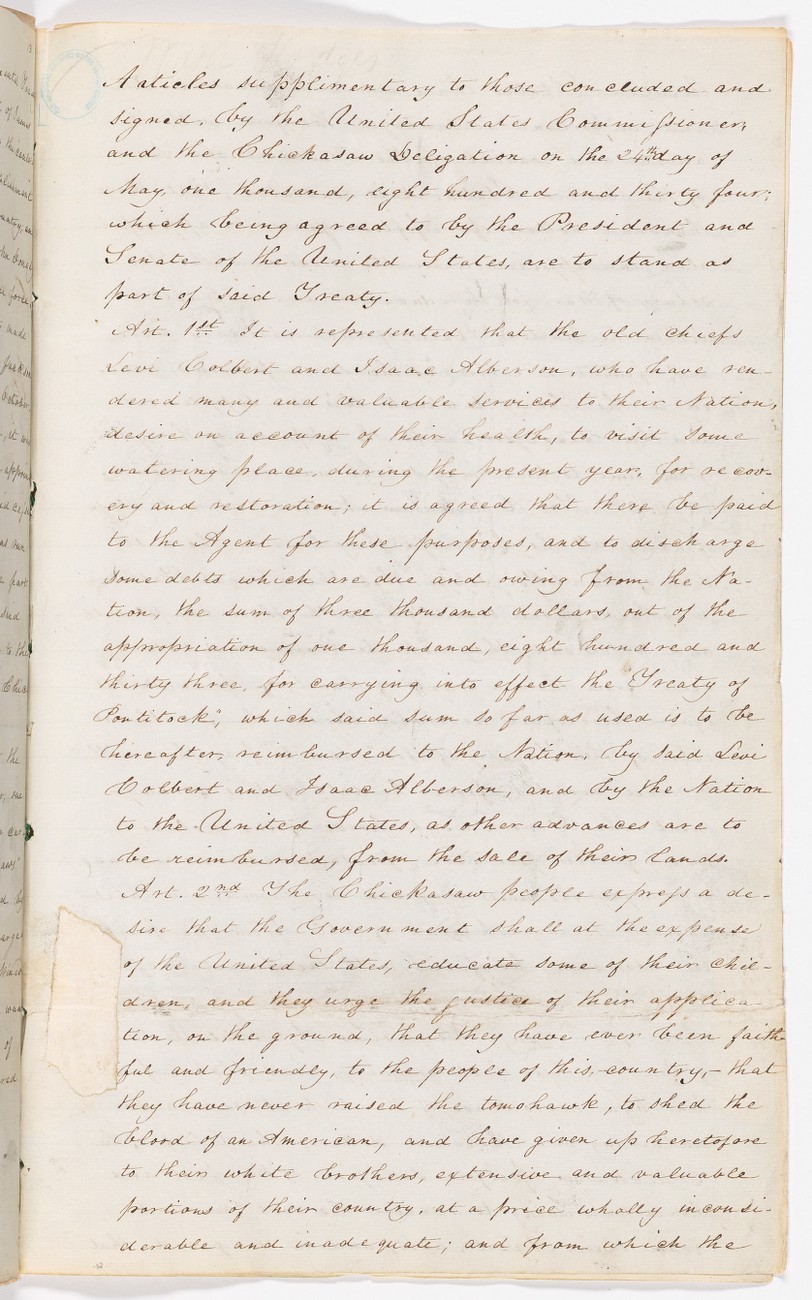 Articles supplimentary to those concluded and
signed, by the United States Commissioner,
and the Chickasaw Deligation on the 24th day of
May, one thousand, eight hundred and thirty four;
which being agreed to by the President and
Senate of the United States, are to stand as
part of said Treaty.
Art. 1st It is represented that the old chiefs
Levi Colbert and Isaac Alberson, who have ren-
dered many and valuable services to their Nation,
desire on account of their health, to visit some
watering place, during the present year, for recov-
ery and restoration; it is agreed that there be paid
to the Agent for these purposes, and to discharge
some debts which are due and owing from the Na-
tion, the sum of three thousand dollars, out of the
appropriation of one thousand, eight hundred and
thirty three, for carrying into effect the "Treaty of
Pontitock", which said sum so far as used is to be
hereafter, reimbursed to the Nation, by said Levi
Colbert and Isaac Alberson, and by the Nation
to the United States, as other advances are to
be reimbursed, from the sale of their lands.
Art. 2nd The Chickasaw people express a de-
sire that the Government shall at the expense
of the United States, educate some of their chil-
dren, and they urge the justice of their applica-
tion, on the ground, that they have ever been faith-
ful and friendly, to the people of this, country,- that
they have never raised the tomohawk, to shed the
blood of an American, and have given up heretofore
to their white brothers, extensive and valuable
portions of their country, at a price wholly inconsi-
derable and inadequate; and from which the